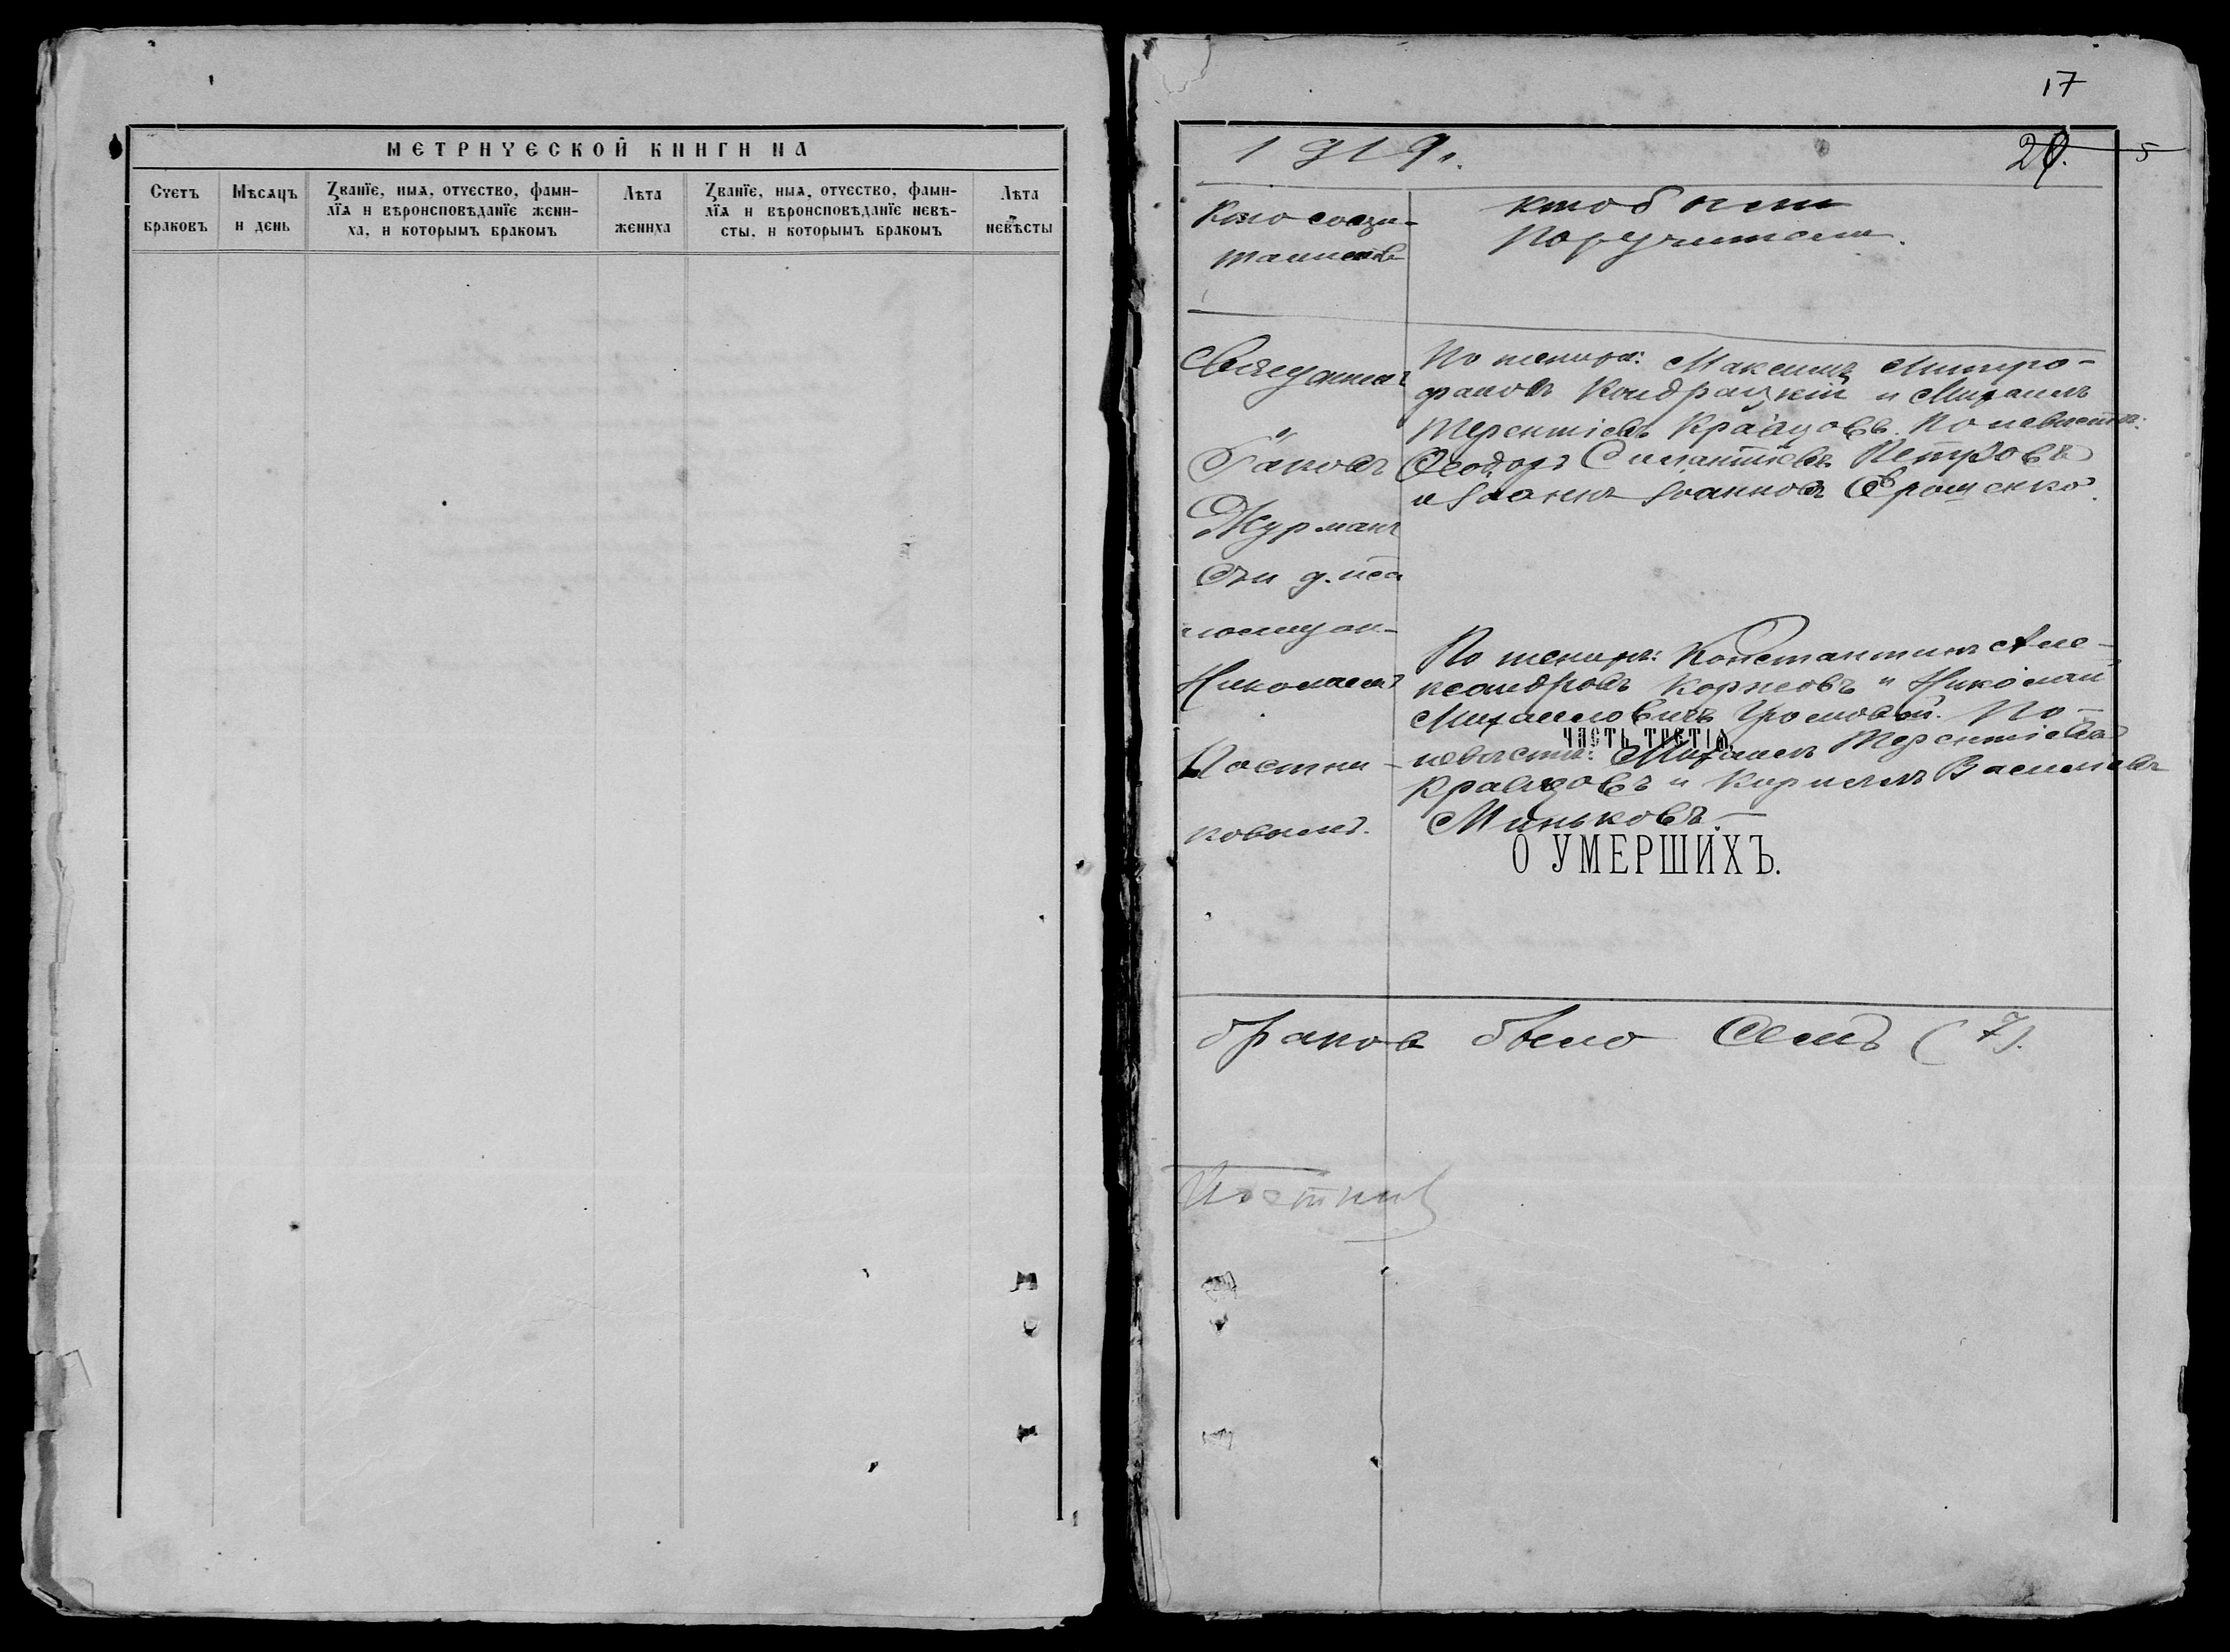 МЕТРИЧЕСКОЙ КНИГИ НА
Счетъ браковъ
Мѣсяцъ и день
Званїе, имя, отчество, фами-
лїя и вѣроисповѣданїе жени-
ха, и которымъ бракомъ
Лѣта жениха
Званїе, имя, отчество, фами-
лїя и вѣроисповѣданїе невѣ-
сты, и которымъ бракомъ
Лѣта невѣсты
17
1919г.
5
Кто совер-
таинств
кто были
поручители.
Священник
Iаковъ
Журман
съ
Николаем
Постни-
ковымъ.
По жениху: Максимъ Митро-
фановъ Кондрацкій и Михаилъ
Терентіевъ Кравцовъ. По невѣстѣ:
Ѳеодоръ Силантіевъ Петровъ
и Іоаннъ Іоанновъ Ерошенко.
По жениху: Константинъ Але-
ксандровъ Коржовъ и Николай
Михаиловичъ Громовой. По-
ЧАСТЬ ТРЕТІЯ,
невѣстѣ: Михаилъ Терентіевъ
Кравцовъ и Кириллъ Васильевъ
Миньковъ
О УМЕРШИХЪ.
браков было Семь (7).